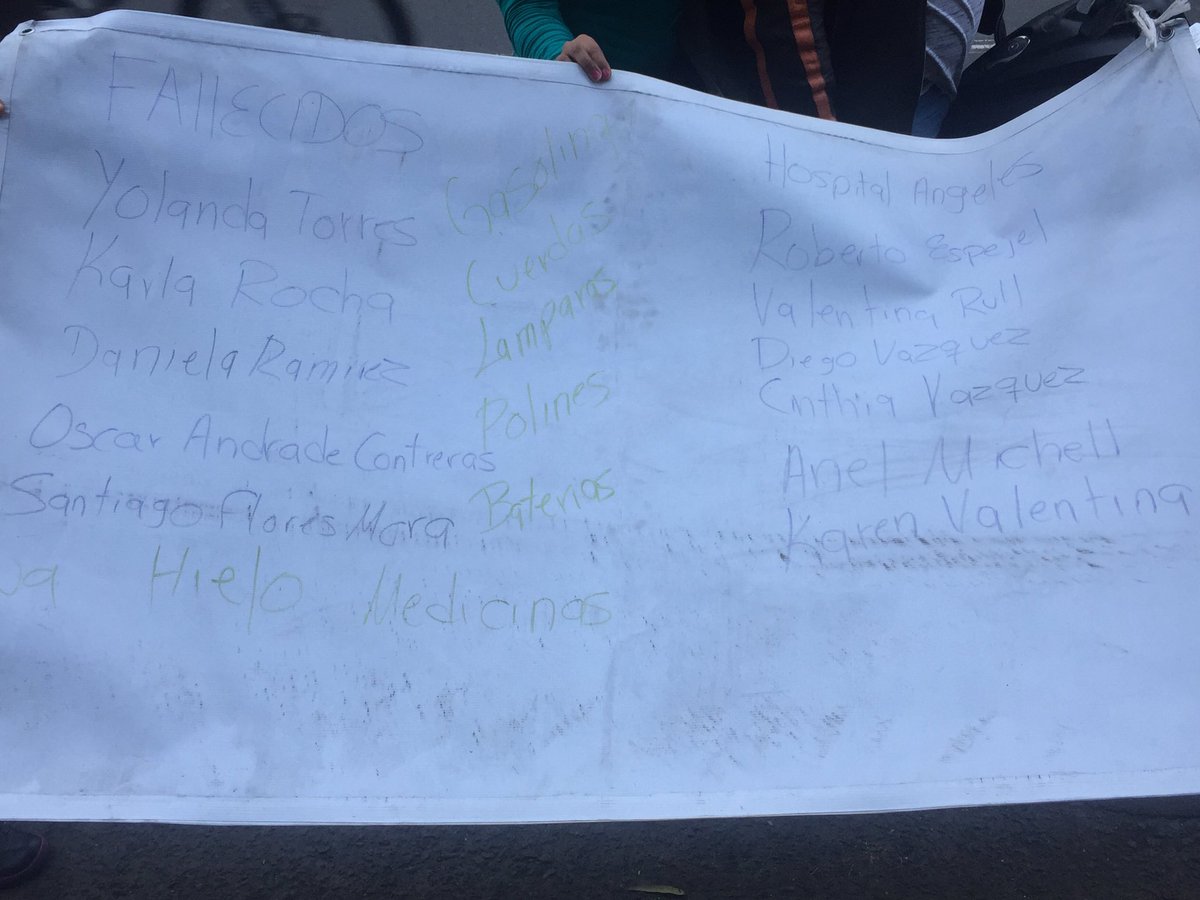 FAllECIDOS
Yolanda Torres
Karla Rocha
Daniela Ramirez
Oscar Andrade Contreras
Santiago Flores Mora
Gasolina
Cuerdas
Lamparas
Polines
Baterias
Hielo Medicinas
Hospital Angeles
Roberto Espejel
Valentina Rull
Diego Vazquez
Cinthia Vazquez
Anel Michell
Karen Valentina